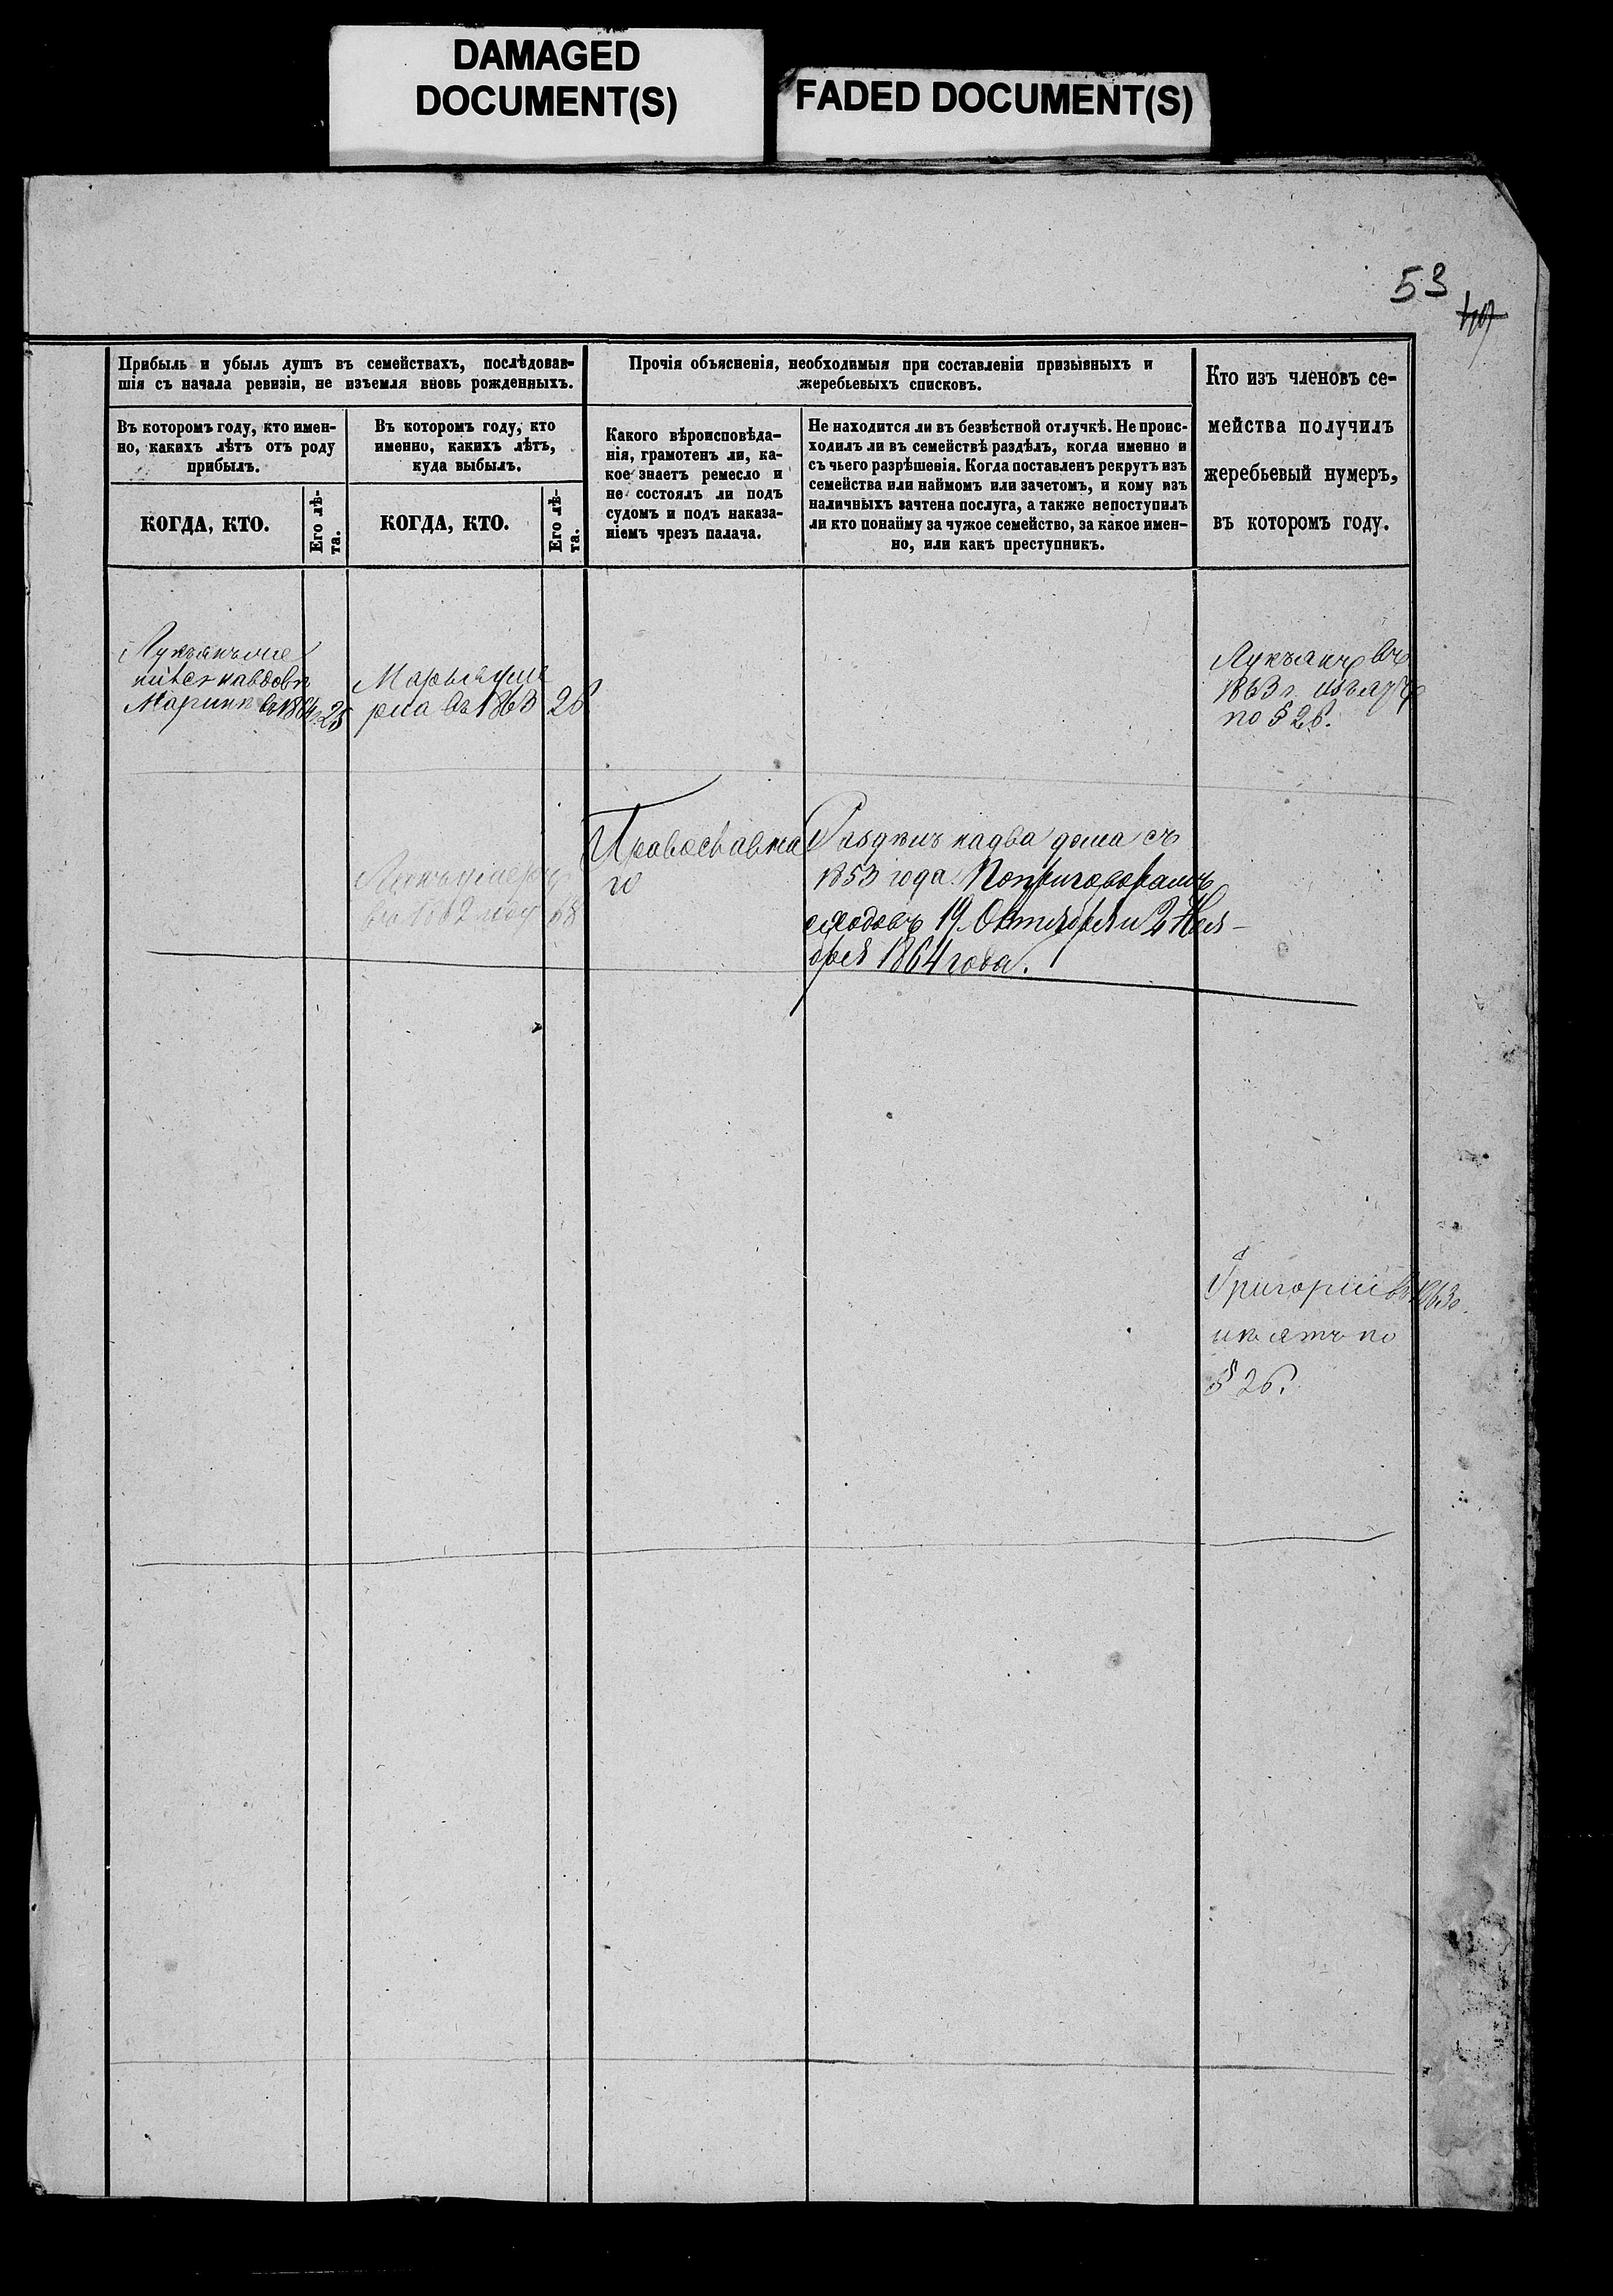 DAMAGED
DOCUMENT(S)
FADED DOCUMENT(S)
53
Прибыль и убыль душъ въ семействахъ, послѣдовав-
шія съ начала ревизіи, не изъемля вновь рожденныхъ.
Прочія объясненія, необходимыя при составленіи призывныхъ и
жеребьевыхъ списковъ.
Кто изъ членовъ се-
мейства получилъ
жеребьевый нумеръ,
въ которомъ году.
Въ которомъ году, кто имен-
но, какихъ лѣтъ отъ роду
прибылъ.
Въ которомъ году, кто
именно, какихъ лѣтъ,
куда выбылъ.
Какого вѣроисповѣда-
нія, грамотенъ ли, ка-
кое знаетъ ремесло и
не состоялъ ли подъ
судомъ и подъ наказа-
ніемъ чрезъ палача.
Не находится ли въ безвѣстной отлучкѣ. Не проис-
ходилъ ли въ семействѣ раздѣлъ, когда именно и
съ чьего разрѣшенія. Когда поставленъ рекрутъ изъ
семейства или наймомъ или зачетомъ, и кому изъ
наличныхъ зачтена послуга, а также непоступилъ
ли кто понайму за чужое семейство, за какое имен-
но, или какъ преступникъ.
КОГДА, КТО.
Его лѣ-
та.
КОГДА, КТО.
Его лѣ-
та.
Лукъянъ же
нитса на вдовѣ
Маринѣ въ 1864 г. 25
Марья уме
рла въ 1863 26
Лукъянъ въ
1863 г. изъятъ
по § 26.
умеръ
въ 1862 году 68
Православна
го
на два дома съ
1853 года. По приговорамъ
сходовъ 19. Октября и 2 Ноя-
бря 1864 года.
Григорій въ 1863 г.
изъятъ по
§ 26.